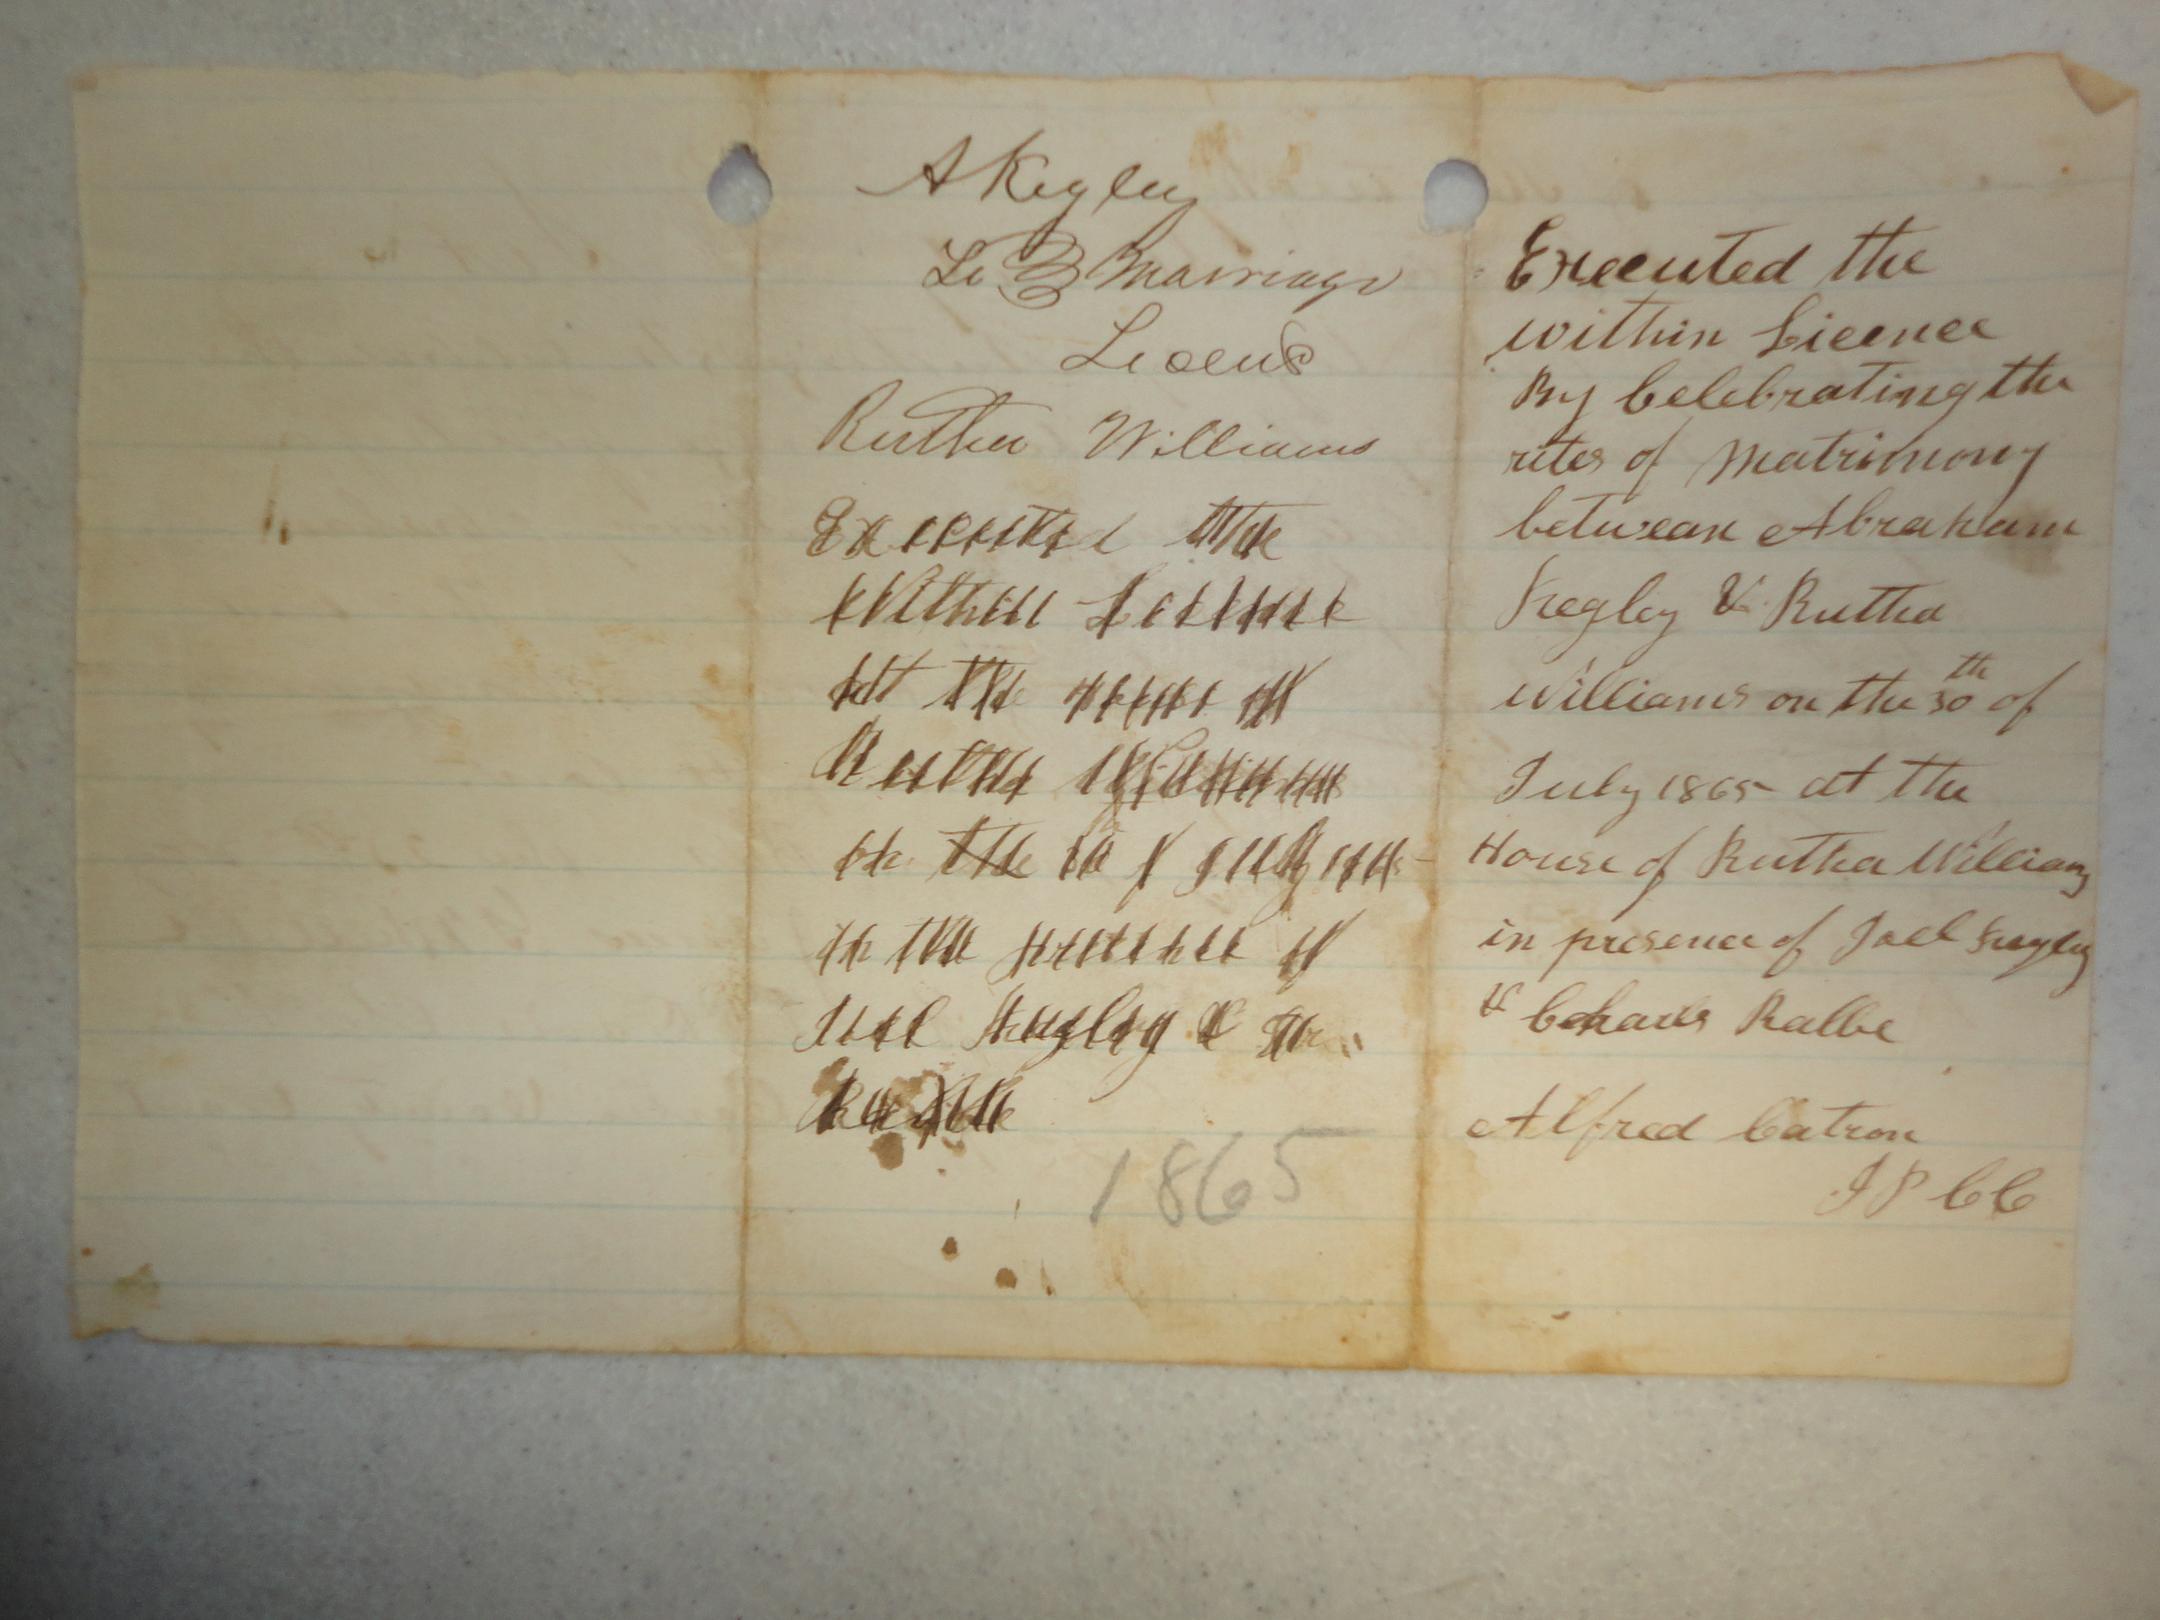 A Kegley
To } Marriage
Licens
Ruthea Williams
Executed the
Within License
at the house of
Ruthea Williams
on the 30 of July 1865
in the presence of
Joel Keagley &
1865
Executed the
within Licence
By Celebrating the
rites of Matrimony
between Abraham
Kegley & Ruthea
Williams on the 30th of
July 1865 at the
House of Ruthea Williams
in presence of Joel Kegley
& Charls
Alfred Catron
J P C C